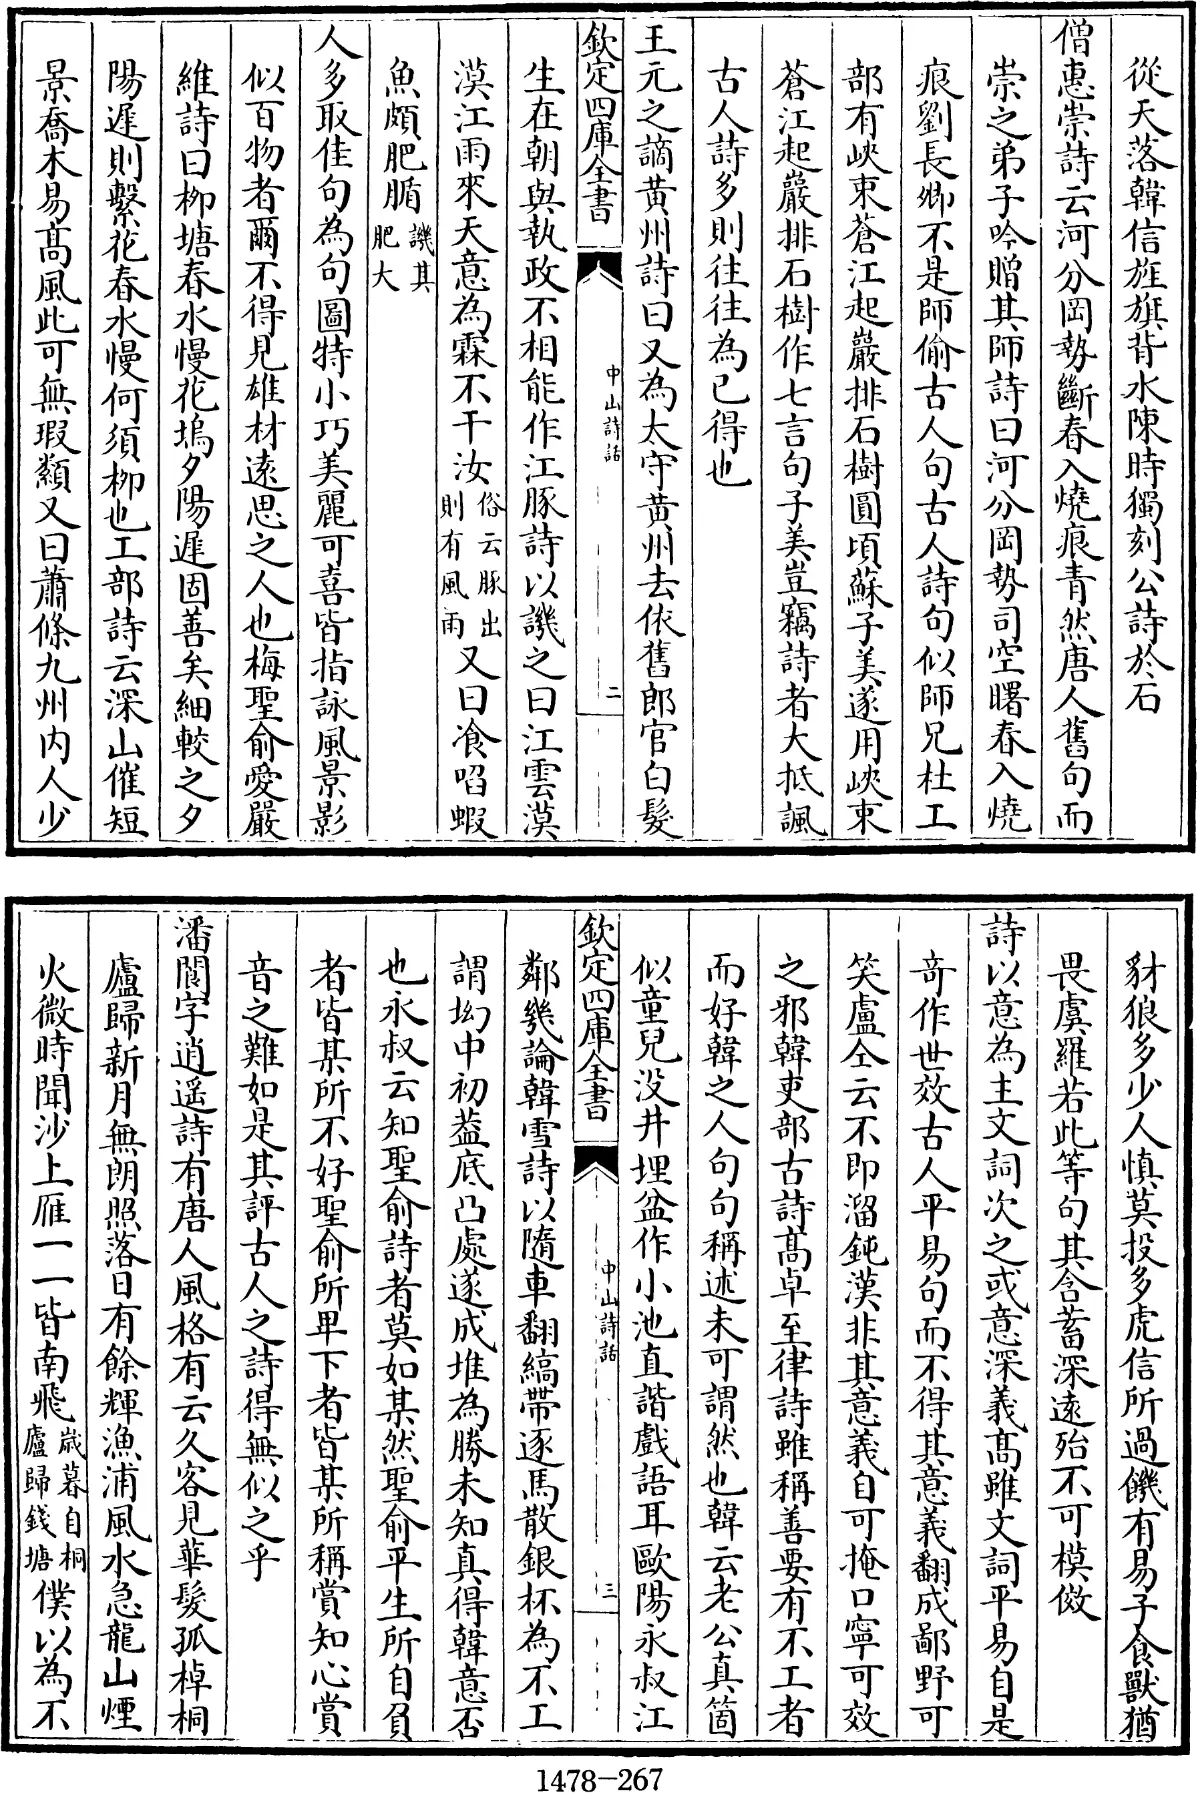 從天落韓信旌旗背水陳時獨刻公詩於石
僧惠崇詩云河分岡勢斷春入燒痕青然唐人舊句而
崇之弟子吟贈其師詩曰河分岡勢司空曙春入燒
痕劉長卿不是師偷古人句古人詩句似師兄杜工
部有峽束蒼江起巖排石樹圓頃蘇子美遂用峽束
蒼江起巖排石樹作七言句子美豈竊詩者大抵諷
古人詩多則往往為已得也
王元之謫黃州詩曰又為太守黃州去依舊郎官白髮
欽定四庫全書
中山詩話
二
生在朝與執政不相能作江豚詩以譏之曰江雲漠
漠江雨來天意為霖不干汝俗云豚出則有風雨又曰飡啗蝦
魚頗肥腯譏其肥大
人多取佳句為句圖特小巧美麗可喜皆指詠風景影
似百物者爾不得見雄材遠思之人也梅聖俞愛嚴
維詩曰栁塘春水慢花塢夕陽遲固善矣細較之夕
陽遲則繫花春水慢何須栁也工部詩云深山催短
景喬木易髙風此可無瑕纇又曰蕭條九州内人少
豺狼多少人慎莫投多虎信所過饑有易子食獸猶
畏虞羅若此等句其含蓄深遠殆不可模倣
詩以意為主文詞次之或意深義髙雖文詞平易自是
竒作世效古人平易句而不得其意義翻成鄙野可
笑盧仝云不即溜鈍漢非其意義自可掩口寧可效
之邪韓吏部古詩髙卓至律詩雖稱善要有不工者
而好韓之人句句稱述未可謂然也韓云老公真箇
似童兒没井埋盆作小池直諧戲語耳歐陽永叔江
欽定四庫全書
中山詩話
三
鄰幾論韓雪詩以隨車翻縞帶逐馬散銀杯為不工
謂坳中初葢底凸處遂成堆為勝未知真得韓意否
也永叔云知聖俞詩者莫如某然聖俞平生所自負
者皆某所不好聖俞所卑下者皆某所稱賞知心賞
音之難如是其評古人之詩得無似之乎
潘閬字逍遥詩有唐人風格有云久客見華髮孤棹桐
廬歸新月無朗照落日有餘輝漁浦風水急龍山煙
火微時聞沙上雁一一皆南飛歲暮自桐廬歸錢塘僕以為不
1478-267